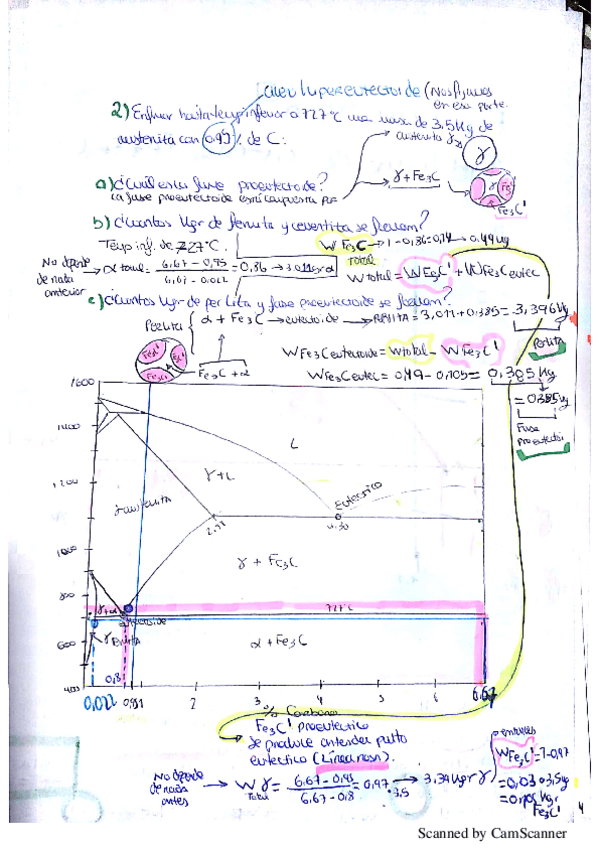 (Nos fijamos
en esa parte.
2) Enfriar hasta temp inferior a 727°C una masa de 3,5 Kg de
austenita con 0,95 % de C:
austenita γ
γ
a) ¿Cuál es la fase proeutectoide?
la fase proeutectoide está compuesta por
γ + Fe3C
Fe3C'
b) ¿Cuántos Kgr de ferrita y cementita se forman?
Temp inf. de 727°C.
W Fe3C → 1-0,86=0,14 → 0.49 Kg
TOTAL
No depende
de nada
anterior
α total = 6,67 - 0,95 / 6,67 - 0,022 = 0,86 → 3,011 Kgr α
W total = W Fe3C' + W Fe3C eutec
c) ¿Cuántos Kgr de perlita y fase proeutectoide se forman?
Perlita { α + Fe3C → eutectoide → PERLITA = 3,011 + 0,385 = 3,396 Kg
Perlita
Fe3C + α
W Fe3C eutectoide = W total - W Fe3C'
W Fe3C eutec = 0,49 - 0,105 = 0,385 Kg
= 0,385 Kg
Fase
proeutectoi
1600
1400
1200
1000
800
600
400
L
γ + L
γ austenita
Eutectico
2.11
4.30
γ + Fe3C
γ + α
727°C
α + Fe3C
0,8
0,022
0,95
1
2
3
4
5
6
6.67
% Carbono
Fe3C' proeutectico
se produce antes del punto
eutectico (Línea rosa).
No depende
de nada
antes
W γ = 6,67 - 0,95 / 6,67 - 0,8 = 0,97 · 3.5 → 3,39 Kgr γ
Total
entonces
W Fe3C' = 1-0,97
= 0,03 · 3,5 Kg
= 0,105 Kgr
Fe3C'
4
Scanned by CamScanner